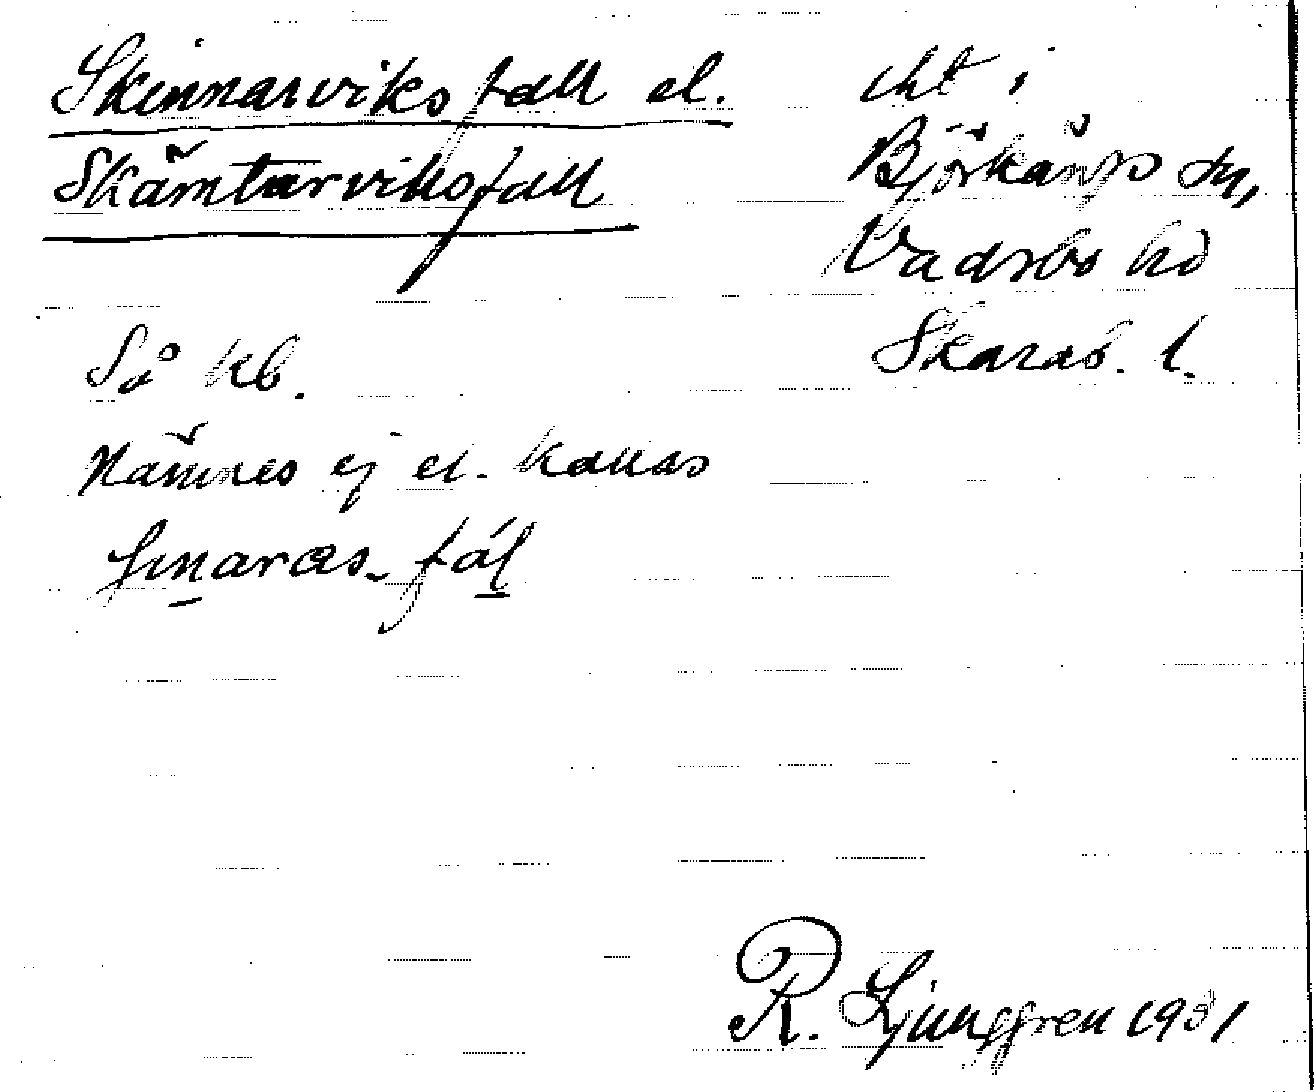 Skinnarviksfall el.
Skämtarviksfall
cht i
Björkängs sn,
Vadsbo hd
Skarab. l.
Så kb.
Nämnes ej el. kallas
-fál
R. Ljunggren 1931